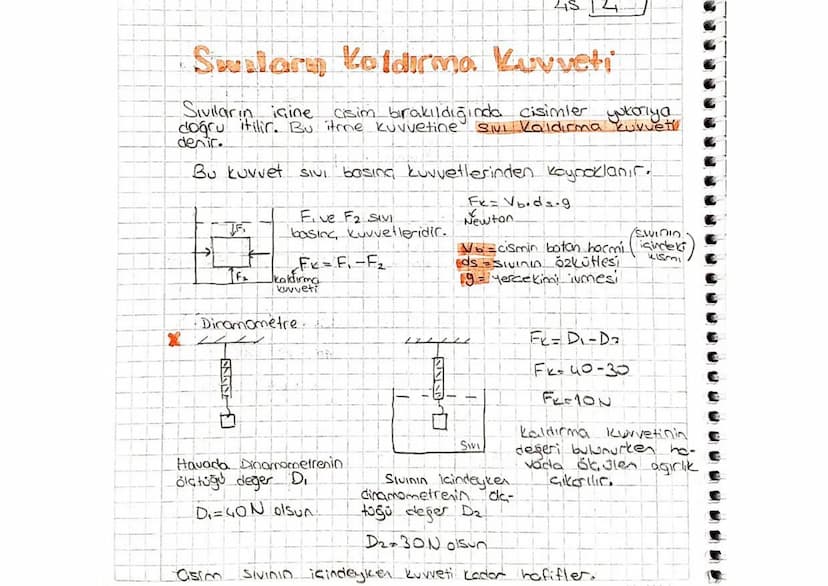 4
Sıvıların Kaldırma Kuvveti
Sıvıların içine cisim bırakıldığında cisimler yukarıya
doğru itilir. Bu itme kuvvetine sıvı kaldırma kuvveti
denir.
Bu kuvvet sıvı basınç kuvvetlerinden kaynaklanır.
F₁
F₂
F₁ ve F₂ sıvı
basınç kuvvetleridir.
Fk = F₁ - F₂
kaldırma
kuvveti
Fk = Vb.ds.g
Newton
Vb = cismin batan hacmi (sıvının içindeki kısmı)
ds = sıvının özkütlesi
g = yerçekimi ivmesi
Dinamometre
Sıvı
Havada Dinamometrenin
ölçtüğü değer D₁
D₁ = 40 N olsun
Sıvının içindeyken
dinamometrenin ölç-
tüğü değer D₂
D₂ = 30 N olsun
Fk = D₁ - D₂
Fk = 40 - 30
Fk = 10 N
Kaldırma kuvvetinin
değeri bulunurken ha-
vada ölçülen ağırlık
çıkarılır.
Cisim sıvının içindeyken kuvveti kadar hafifler.